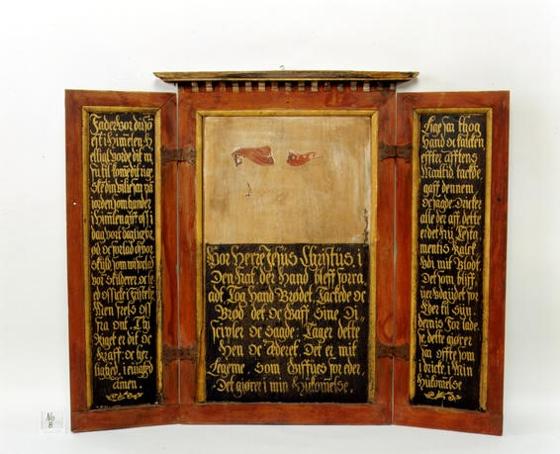 Fader vor du so
est i Himelen H
elligt vorde dit n
afn til kome dit rige
Ske din vilie saa paa
iorden som hander
i Himlen giff oss i
dag vort daglig br
ød oc forlad os vor
skyld som wi forlad
vor skyldener oc le
ed os icke i fristelse
Men frels oss
fra ont. Thi
Riget er dit oc
Kraft oc her
lighed, i ewighed
Amen.
Vor Herre Jesus Christus, i
Den Nat, der Hand bleff forra
adt, Tog Hand Brødet, Tackede oc
Brød det oc Gaff Sine Di
scipler oc sagde: Tager dette
Hen oc Æderet. Det er mit
Legeme, Som Giffues for eder,
Det giører i min Hukomelse.
Lige saa tog
Hand oc Kalcken
effter afftens
Maaltid tackde,
gaff dennem
oc sagde: Dricker
alle der aff, dette
er det Ny Testa
mentis Kalck
udi mit Blod,
Det som bliff
ver udgydet for
Eder til Syn
dernis Forladel
se, dette giører
saa offte som
i dricke, i Min
Hukomelse
No
8